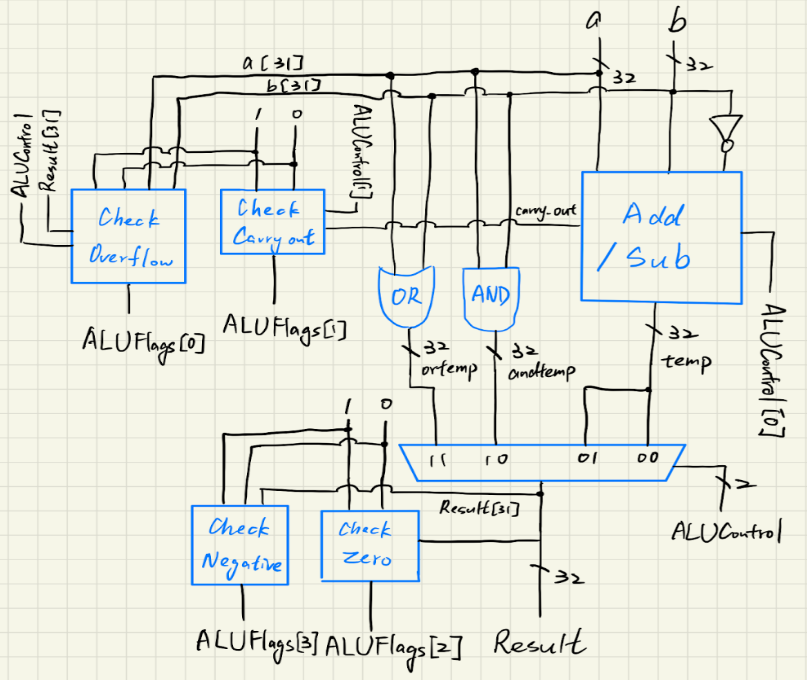 a b
32 32
a[31]
b[31]
1 0
ALUControl
Result[31]
ALUControl[1]
Check
Overflow
Check
Carry out
carry_out
Add
/ Sub
OR
AND
ALUFlags[0]
ALUFlags[1]
32
ortemp
32
andtemp
32
temp
ALUControl[0]
1 0
11 10 01 00
2
ALUControl
Result[31]
Check
Negative
Check
Zero
32
ALUFlags[3] ALUFlags[2] Result